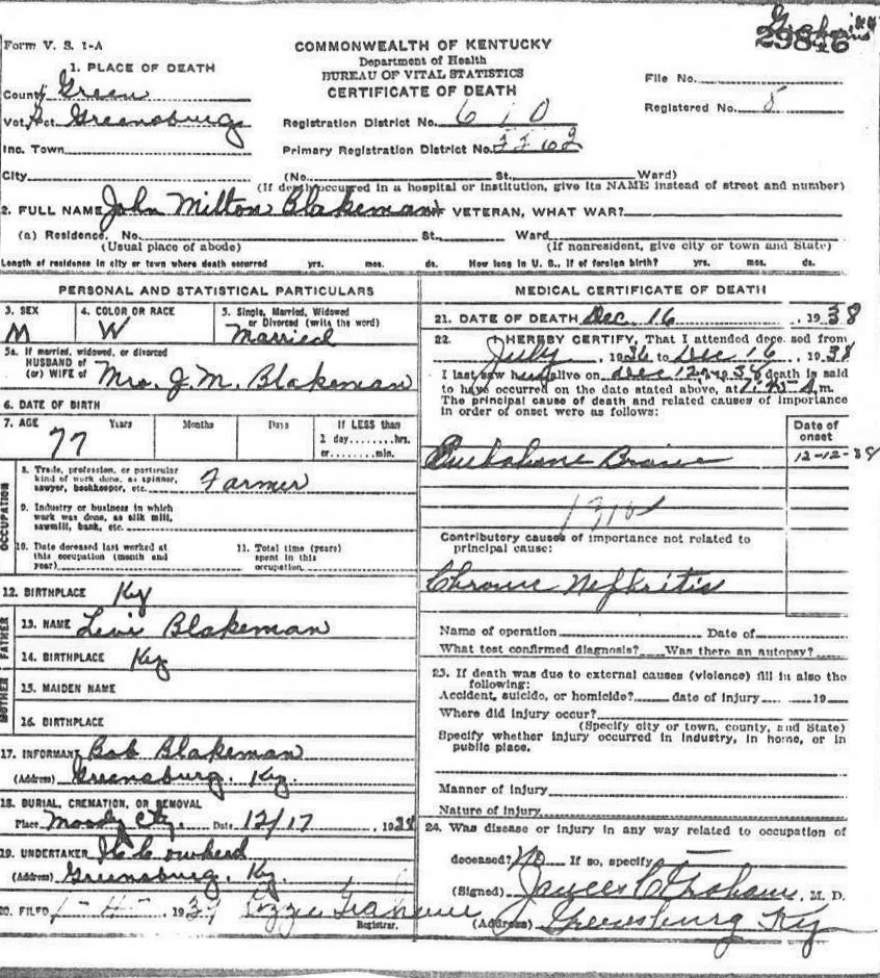 29846
Form V. S. 1-A
COMMONWEALTH OF KENTUCKY
Department of Health
BUREAU OF VITAL STATISTICS
CERTIFICATE OF DEATH
File No.
Registered No. 5
1. PLACE OF DEATH
County Green
Vot. Pct. Greensburg
Inc. Town
City
Registration District No. 610
Primary Registration District No.
(No. St., Ward)
(If death occurred in a hospital or institution, give its NAME instead of street and number)
2. FULL NAME John Milton Blakeman IF VETERAN, WHAT WAR?
(a) Residence. No. St., Ward
(Usual place of abode) (If nonresident, give city or town and State)
Length of residence in city or town where death occurred yrs. mos. ds. How long in U. S., if of foreign birth? yrs. mos. ds.
PERSONAL AND STATISTICAL PARTICULARS
3. SEX 4. COLOR OR RACE 5. Single, Married, Widowed
or Divorced (write the word)
M W Married
5a. If married, widowed, or divorced
HUSBAND of
(or) WIFE of Mrs. J. M. Blakeman
6. DATE OF BIRTH
7. AGE Years Months Days If LESS than
1 day........hrs.
or........min.
77
OCCUPATION
8. Trade, profession, or particular
kind of work done, as spinner,
sawyer, bookkeeper, etc. Farmer
9. Industry or business in which
work was done, as silk mill,
sawmill, bank, etc.
10. Date deceased last worked at
this occupation (month and
year)
11. Total time (years)
spent in this
occupation
12. BIRTHPLACE Ky
FATHER
13. NAME Levi Blakeman
14. BIRTHPLACE Ky
MOTHER
15. MAIDEN NAME
16. BIRTHPLACE
17. INFORMANT Bob Blakeman
(Address) Greensburg, Ky.
18. BURIAL, CREMATION, OR REMOVAL
Place Moody Date 12/17, 1938
19. UNDERTAKER
(Address) Greensburg, Ky.
20. FILED 1-4-, 1939 Lizzie Graham
Registrar.
MEDICAL CERTIFICATE OF DEATH
21. DATE OF DEATH Dec. 16, 1938
22. I HEREBY CERTIFY, That I attended deceased from
July, 1936 to Dec 16, 1938
I last saw him alive on Dec 12, 1938 death is said
to have occurred on the date stated above, at m.
The principal cause of death and related causes of importance
in order of onset were as follows:
Date of
onset
12-12-38
Contributory causes of importance not related to
principal cause:
Chronic Nefritis
Name of operation Date of
What test confirmed diagnosis? Was there an autopsy?
23. If death was due to external causes (violence) fill in also the
following:
Accident, suicide, or homicide? date of injury 19
Where did injury occur?
(Specify city or town, county, and State)
Specify whether injury occurred in industry, in home, or in
public place.
Manner of injury
Nature of injury
24. Was disease or injury in any way related to occupation of
deceased? No If so, specify
(Signed) James C Graham, M. D.
(Address) Greensburg Ky